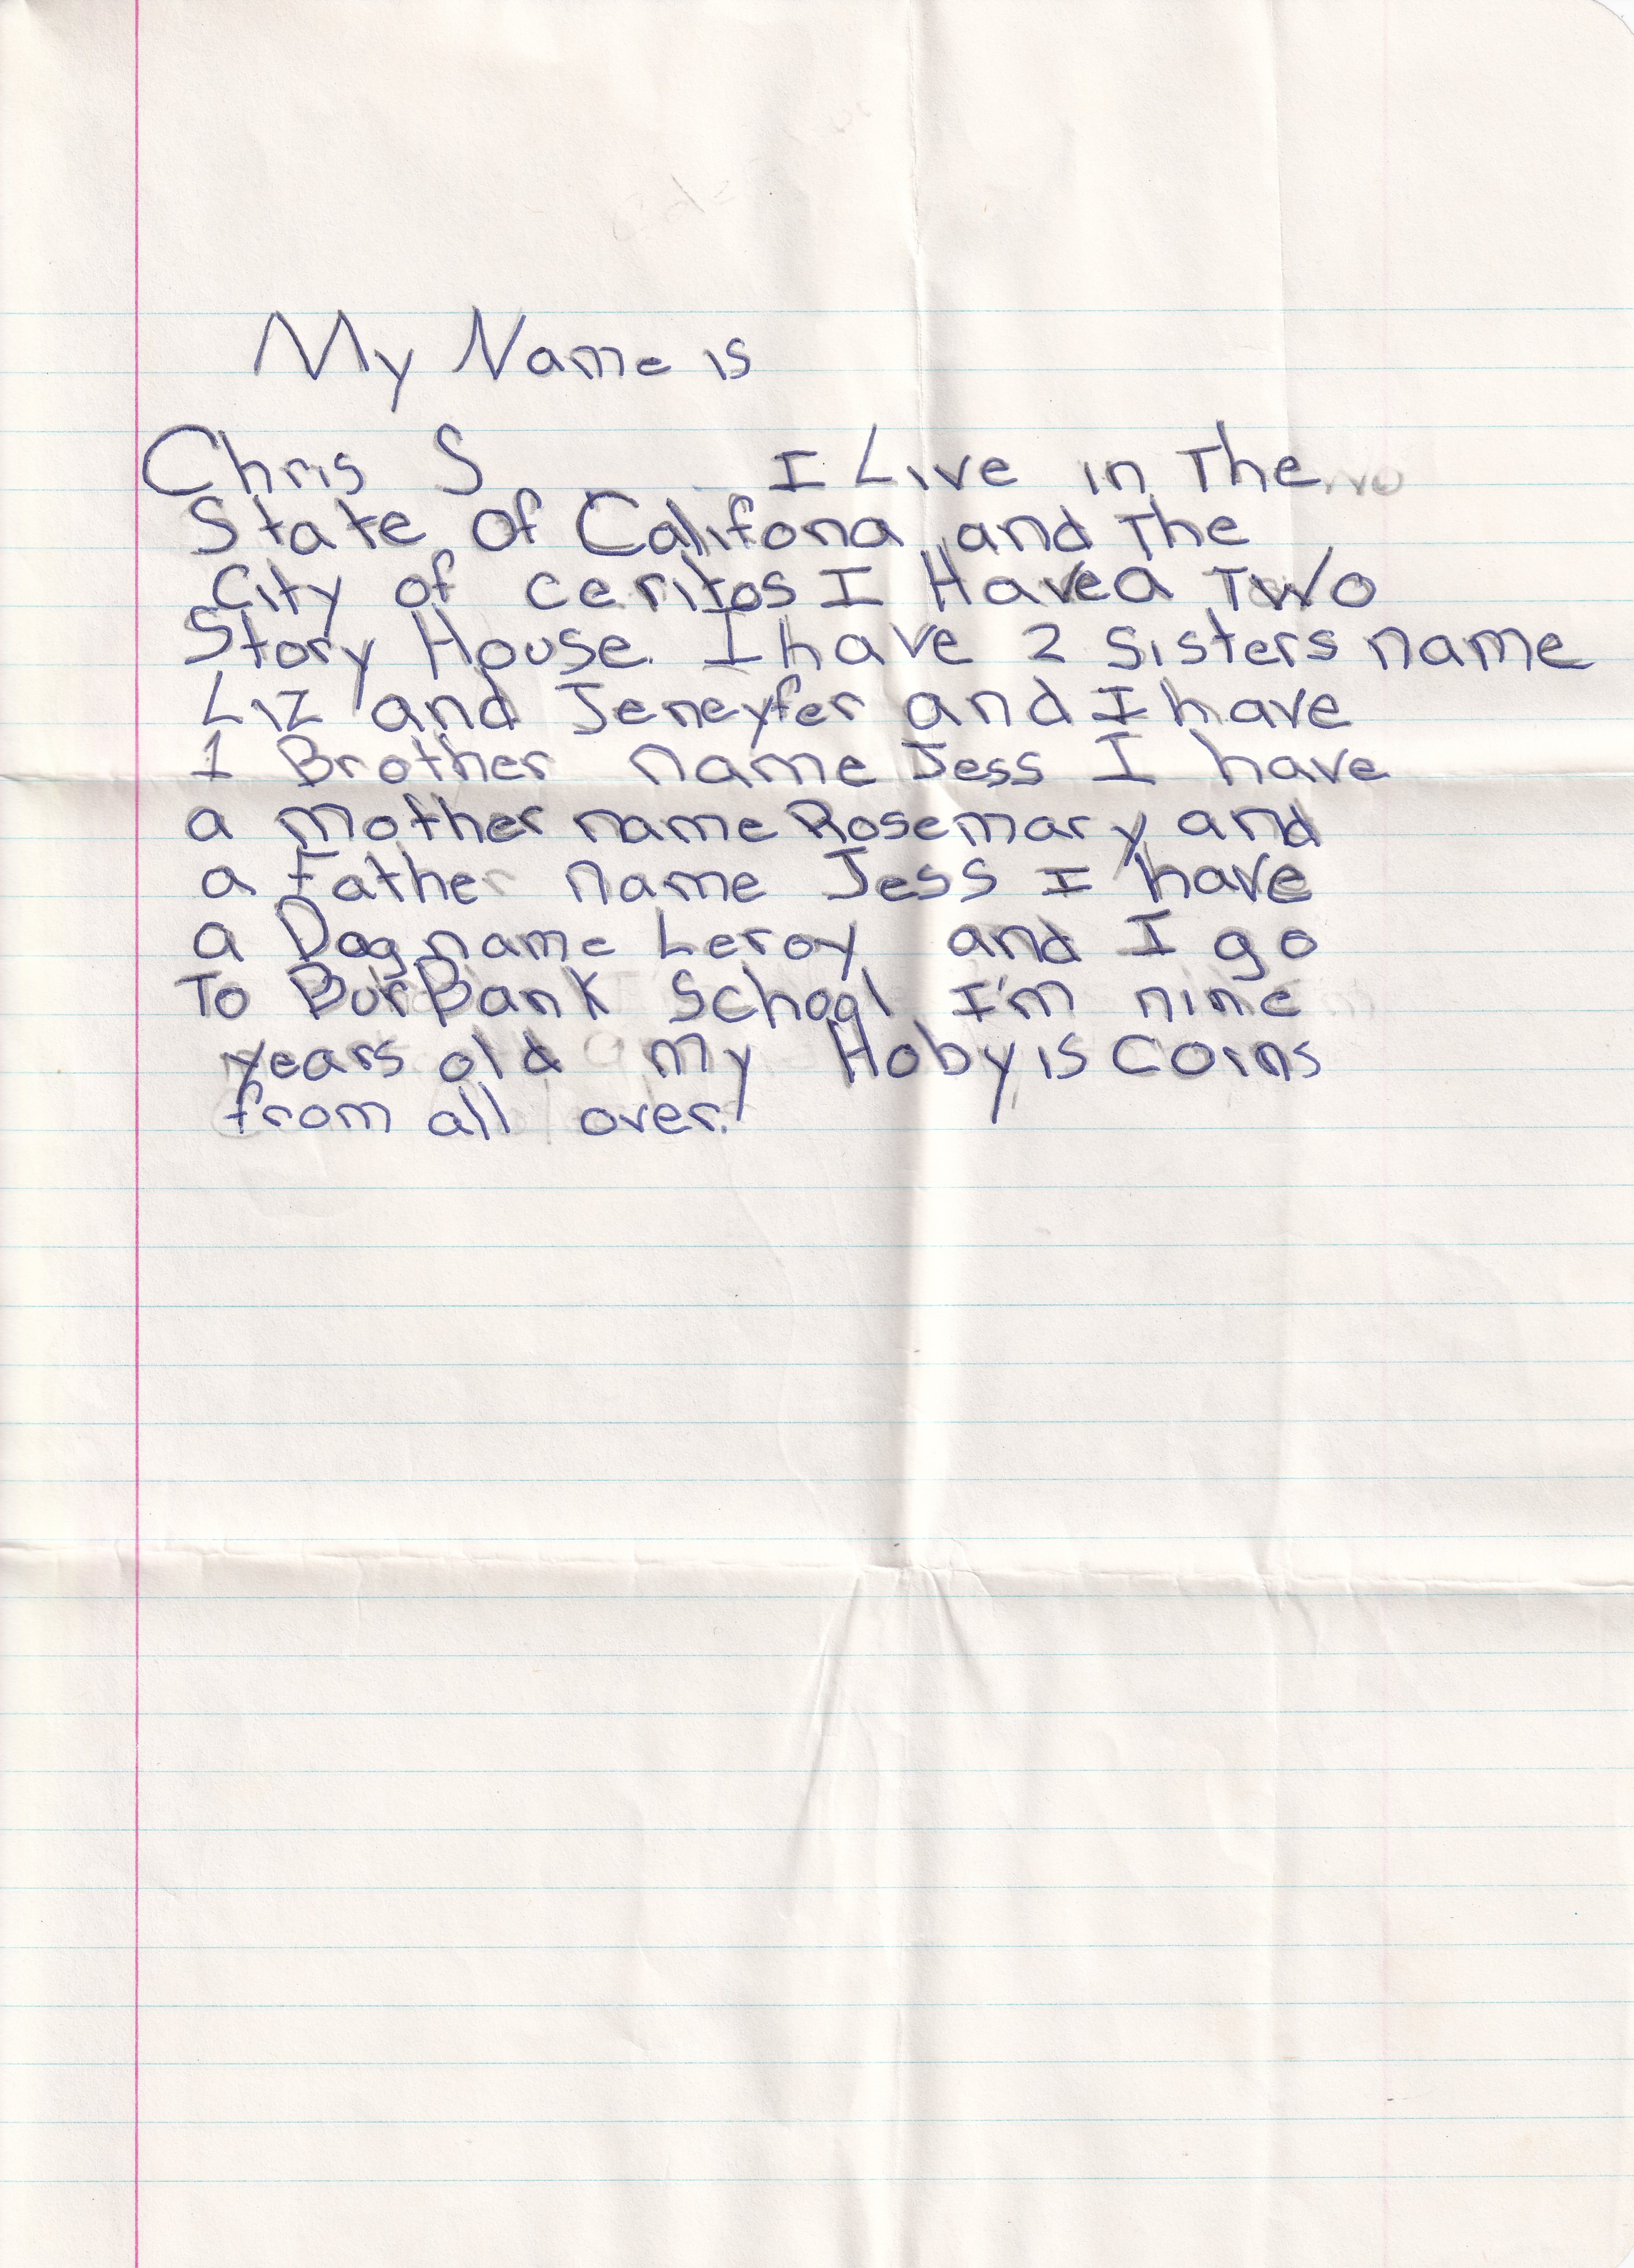 My Name is
Chris S I Live in The
State of Califona and The
City of ceritos I Have a Two
Story House. I have 2 Sisters name
Liz and Jeneyfer and I have
1 Brother name Jess I have
a mother name Rosemary and
a Father name Jess I have
a Dog name Leroy and I go
To BurBank School I'm nine
years old my Hoby is Coins
from all over.